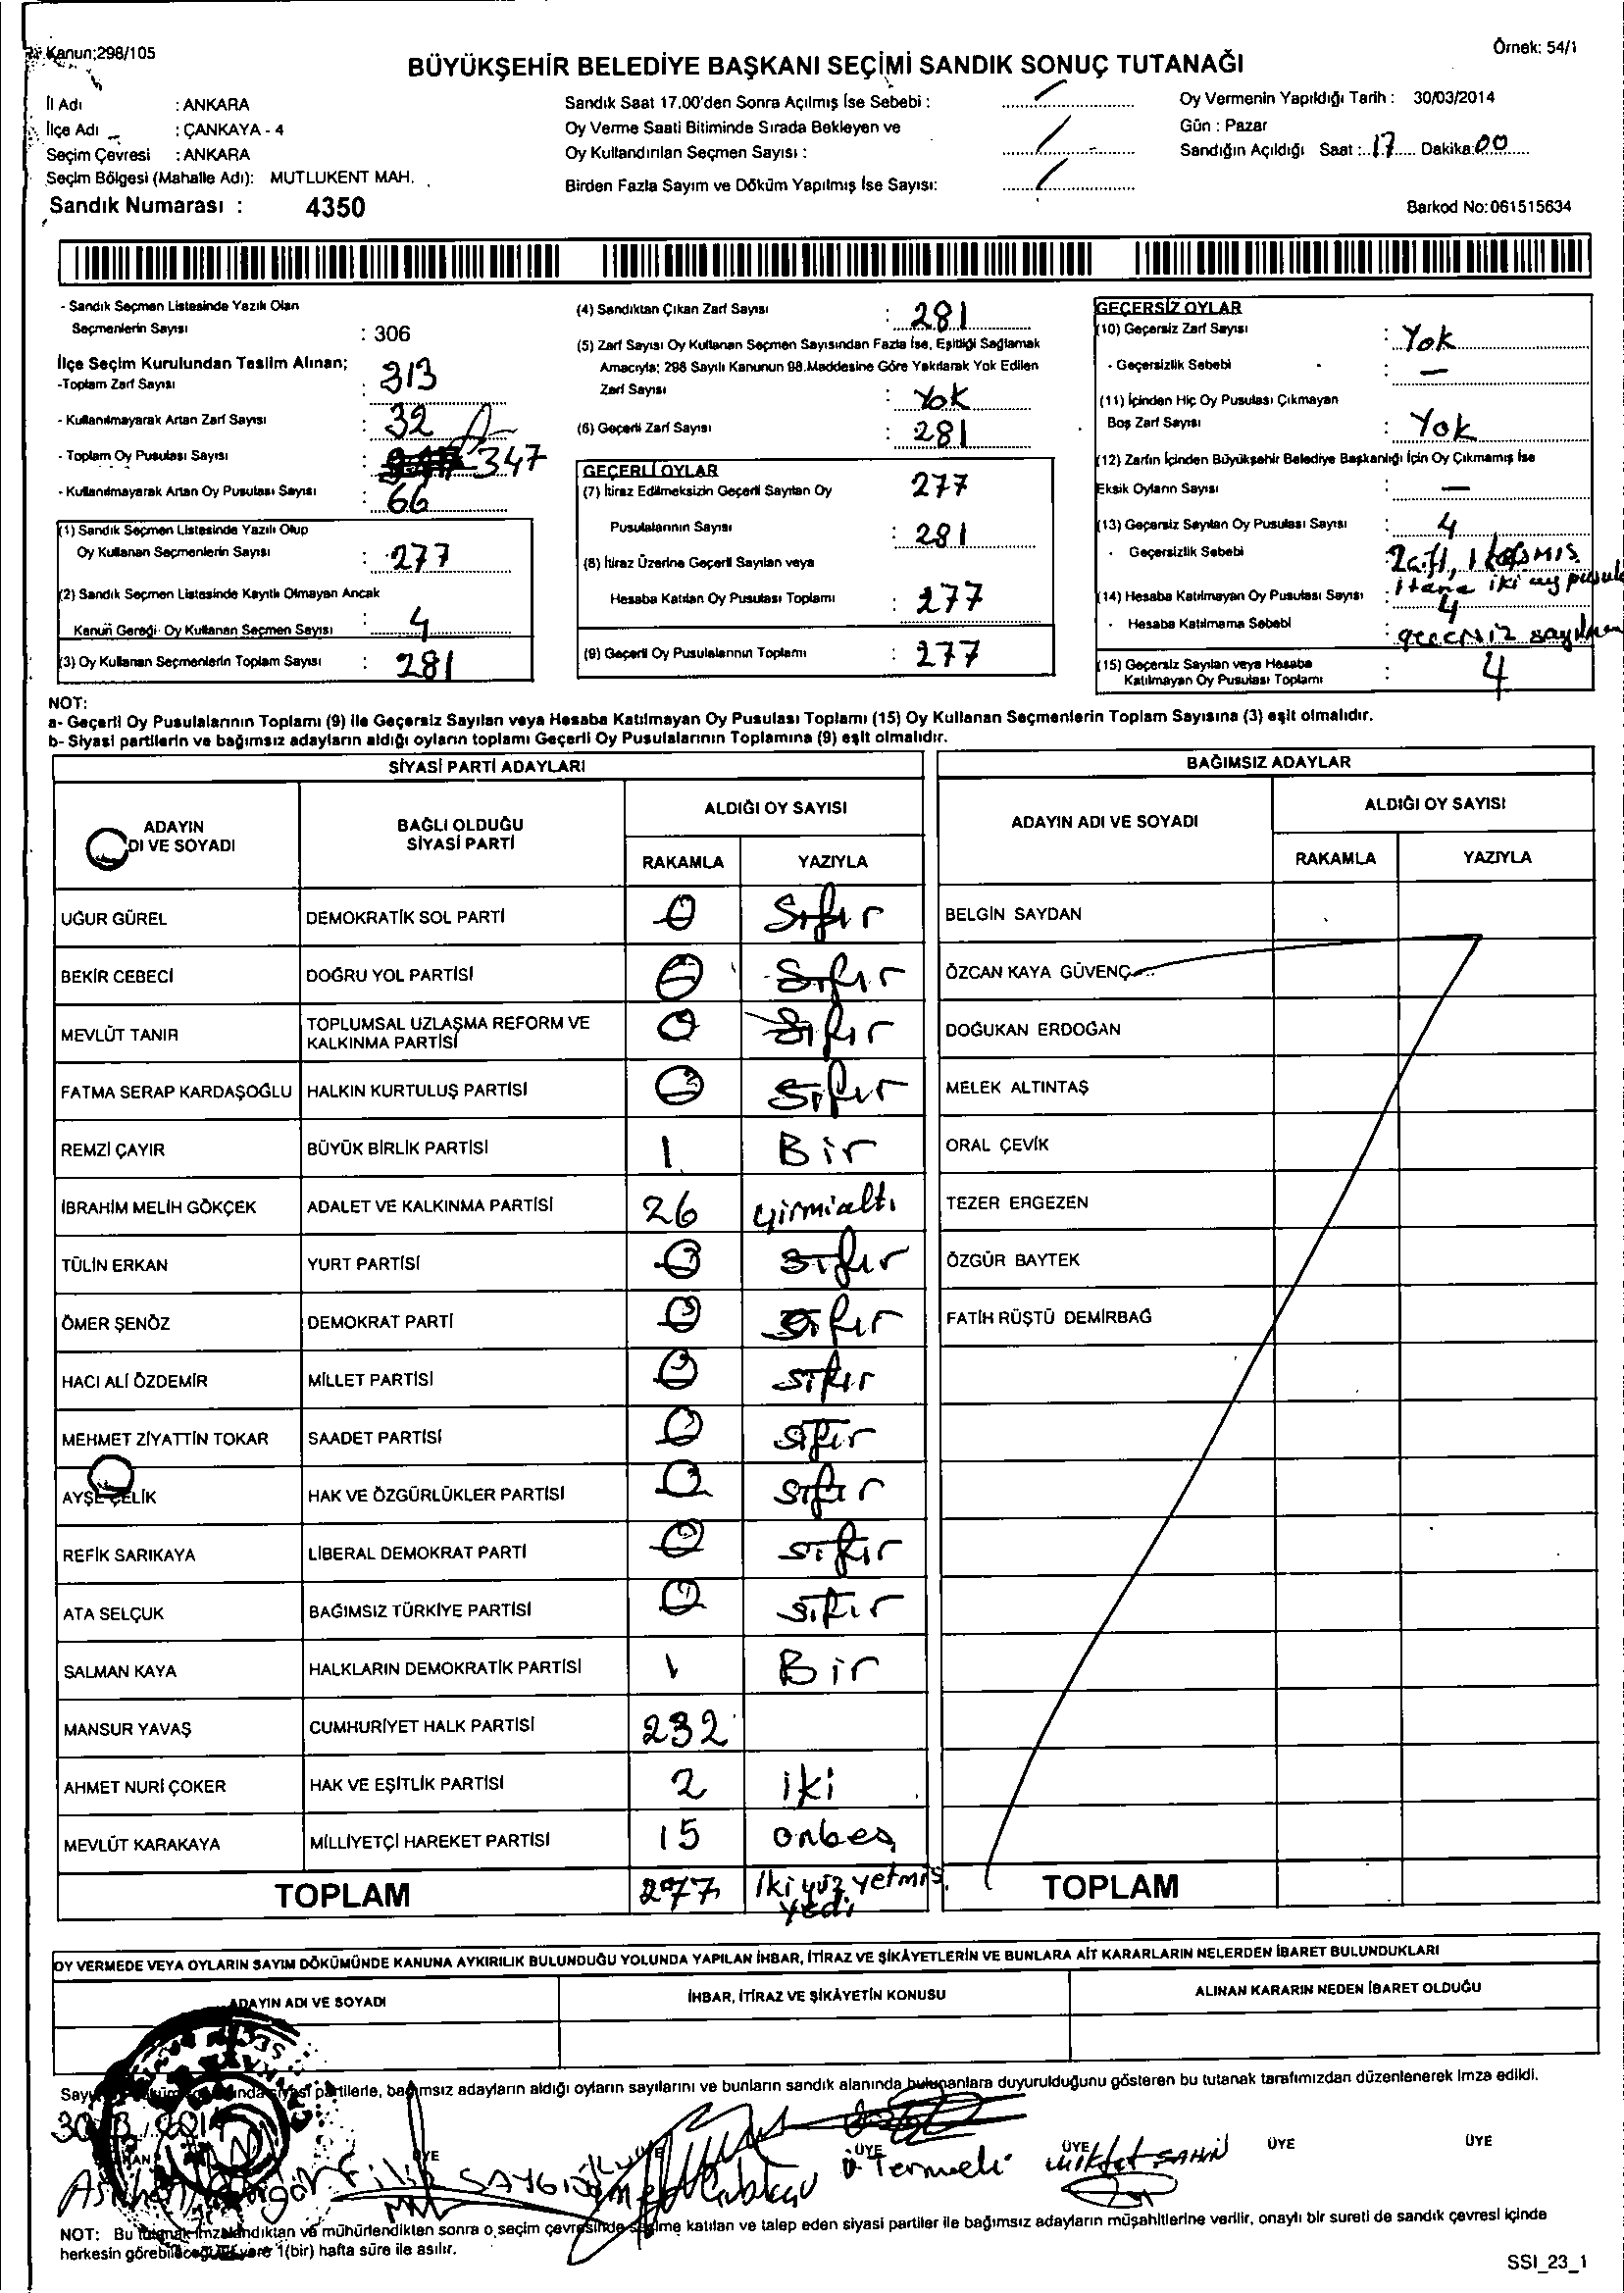 Kanun;298/105
Örnek: 54/1
BÜYÜKŞEHİR BELEDİYE BAŞKANI SEÇİMİ SANDIK SONUÇ TUTANAĞI
İl Adı : ANKARA
İlçe Adı : ÇANKAYA - 4
Seçim Çevresi : ANKARA
Seçim Bölgesi (Mahalle Adı): MUTLUKENT MAH.
Sandık Numarası : 4350
Sandık Saat 17.00'den Sonra Açılmış İse Sebebi :
Oy Verme Saati Bitiminde Sırada Bekleyen ve
Oy Kullandırılan Seçmen Sayısı :
Birden Fazla Sayım ve Döküm Yapılmış İse Sayısı:
Oy Vermenin Yapıldığı Tarih : 30/03/2014
Gün : Pazar
Sandığın Açıldığı Saat : 17 Dakika: 00
Barkod No:061515634
- Sandık Seçmen Listesinde Yazılı Olan
Seçmenlerin Sayısı : 306
İlçe Seçim Kurulundan Teslim Alınan;
-Toplam Zarf Sayısı : 313
- Kullanılmayarak Artan Zarf Sayısı : 32
- Toplam Oy Pusulası Sayısı : 347
- Kullanılmayarak Artan Oy Pusulası Sayısı : 66
(1) Sandık Seçmen Listesinde Yazılı Olup
Oy Kullanan Seçmenlerin Sayısı : 277
(2) Sandık Seçmen Listesinde Kayıtlı Olmayan Ancak
Kanun Gereği Oy Kullanan Seçmen Sayısı : 4
(3) Oy Kullanan Seçmenlerin Toplam Sayısı : 281
(4) Sandıktan Çıkan Zarf Sayısı : 281
(5) Zarf Sayısı Oy Kullanan Seçmen Sayısından Fazla İse, Eşitliği Sağlamak
Amacıyla; 298 Sayılı Kanunun 98.Maddesine Göre Yakılarak Yok Edilen
Zarf Sayısı : Yok
(6) Geçerli Zarf Sayısı : 281
GEÇERLİ OYLAR
(7) İtiraz Edilmeksizin Geçerli Sayılan Oy 277
Pusulalarının Sayısı : 281
(8) İtiraz Üzerine Geçerli Sayılan veya
Hesaba Katılan Oy Pusulası Toplamı : 277
(9) Geçerli Oy Pusulalarının Toplamı : 277
GEÇERSİZ OYLAR
(10) Geçersiz Zarf Sayısı : Yok
- Geçersizlik Sebebi : —
(11) İçinden Hiç Oy Pusulası Çıkmayan
Boş Zarf Sayısı : Yok
(12) Zarfın İçinden Büyükşehir Belediye Başkanlığı İçin Oy Çıkmamış İse
Eksik Oyların Sayısı : —
(13) Geçersiz Sayılan Oy Pusulası Sayısı : 4
- Geçersizlik Sebebi :
1 tane iki
(14) Hesaba Katılmayan Oy Pusulası Sayısı : 4
- Hesaba Katılmama Sebebi :
(15) Geçersiz Sayılan veya Hesaba
Katılmayan Oy Pusulası Toplamı : 4
NOT:
a- Geçerli Oy Pusulalarının Toplamı (9) ile Geçersiz Sayılan veya Hesaba Katılmayan Oy Pusulası Toplamı (15) Oy Kullanan Seçmenlerin Toplam Sayısına (3) eşit olmalıdır.
b- Siyasi partilerin ve bağımsız adayların aldığı oyların toplamı Geçerli Oy Pusulalarının Toplamına (9) eşit olmalıdır.
SİYASİ PARTİ ADAYLARI
ADAYIN
DI VE SOYADI
BAĞLI OLDUĞU
SİYASİ PARTİ
ALDIĞI OY SAYISI
RAKAMLA YAZIYLA
UĞUR GÜREL DEMOKRATİK SOL PARTİ 0 Sıfır
BEKİR CEBECİ DOĞRU YOL PARTİSİ 0 Sıfır
MEVLÜT TANIR TOPLUMSAL UZLAŞMA REFORM VE
KALKINMA PARTİSİ 0 Sıfır
FATMA SERAP KARDAŞOĞLU HALKIN KURTULUŞ PARTİSİ 0 Sıfır
REMZİ ÇAYIR BÜYÜK BİRLİK PARTİSİ 1 Bir
İBRAHİM MELİH GÖKÇEK ADALET VE KALKINMA PARTİSİ 26 yirmialtı
TÜLİN ERKAN YURT PARTİSİ 0 Sıfır
ÖMER ŞENÖZ DEMOKRAT PARTİ 0 Sıfır
HACI ALİ ÖZDEMİR MİLLET PARTİSİ 0 Sıfır
MEHMET ZİYATTİN TOKAR SAADET PARTİSİ 0 Sıfır
AYŞE ÇELİK HAK VE ÖZGÜRLÜKLER PARTİSİ 0 Sıfır
REFİK SARIKAYA LİBERAL DEMOKRAT PARTİ 0 Sıfır
ATA SELÇUK BAĞIMSIZ TÜRKİYE PARTİSİ 0 Sıfır
SALMAN KAYA HALKLARIN DEMOKRATİK PARTİSİ 1 Bir
MANSUR YAVAŞ CUMHURİYET HALK PARTİSİ 232
AHMET NURİ ÇOKER HAK VE EŞİTLİK PARTİSİ 2 iki
MEVLÜT KARAKAYA MİLLİYETÇİ HAREKET PARTİSİ 15 onbeş
TOPLAM 277 İki yüz yetmiş
yedi
BAĞIMSIZ ADAYLAR
ADAYIN ADI VE SOYADI
ALDIĞI OY SAYISI
RAKAMLA YAZIYLA
BELGİN SAYDAN
ÖZCAN KAYA GÜVENÇ
DOĞUKAN ERDOĞAN
MELEK ALTINTAŞ
ORAL ÇEVİK
TEZER ERGEZEN
ÖZGÜR BAYTEK
FATİH RÜŞTÜ DEMİRBAĞ
TOPLAM
OY VERMEDE VEYA OYLARIN SAYIM DÖKÜMÜNDE KANUNA AYKIRILIK BULUNDUĞU YOLUNDA YAPILAN İHBAR, İTİRAZ VE ŞİKÂYETLERİN VE BUNLARA AİT KARARLARIN NELERDEN İBARET BULUNDUKLARI
ADAYIN ADI VE SOYADI
İHBAR, İTİRAZ VE ŞİKÂYETİN KONUSU
ALINAN KARARIN NEDEN İBARET OLDUĞU
siyasi partilerle, bağımsız adayların aldığı oyların sayılarını ve bunların sandık alanında bulunanlara duyurulduğunu gösteren bu tutanak tarafımızdan düzenlenerek imza edildi.
ÜYE ÜYE ÜYE ÜYE ÜYE ÜYE
ŞAHİN
NOT: Bu tutanak imzalandıktan ve mühürlendikten sonra o seçim çevresinde seçime katılan ve talep eden siyasi partiler ile bağımsız adayların müşahitlerine verilir, onaylı bir sureti de sandık çevresi içinde
herkesin görebileceği bir yere 1(bir) hafta süre ile asılır.
SSI_23_1